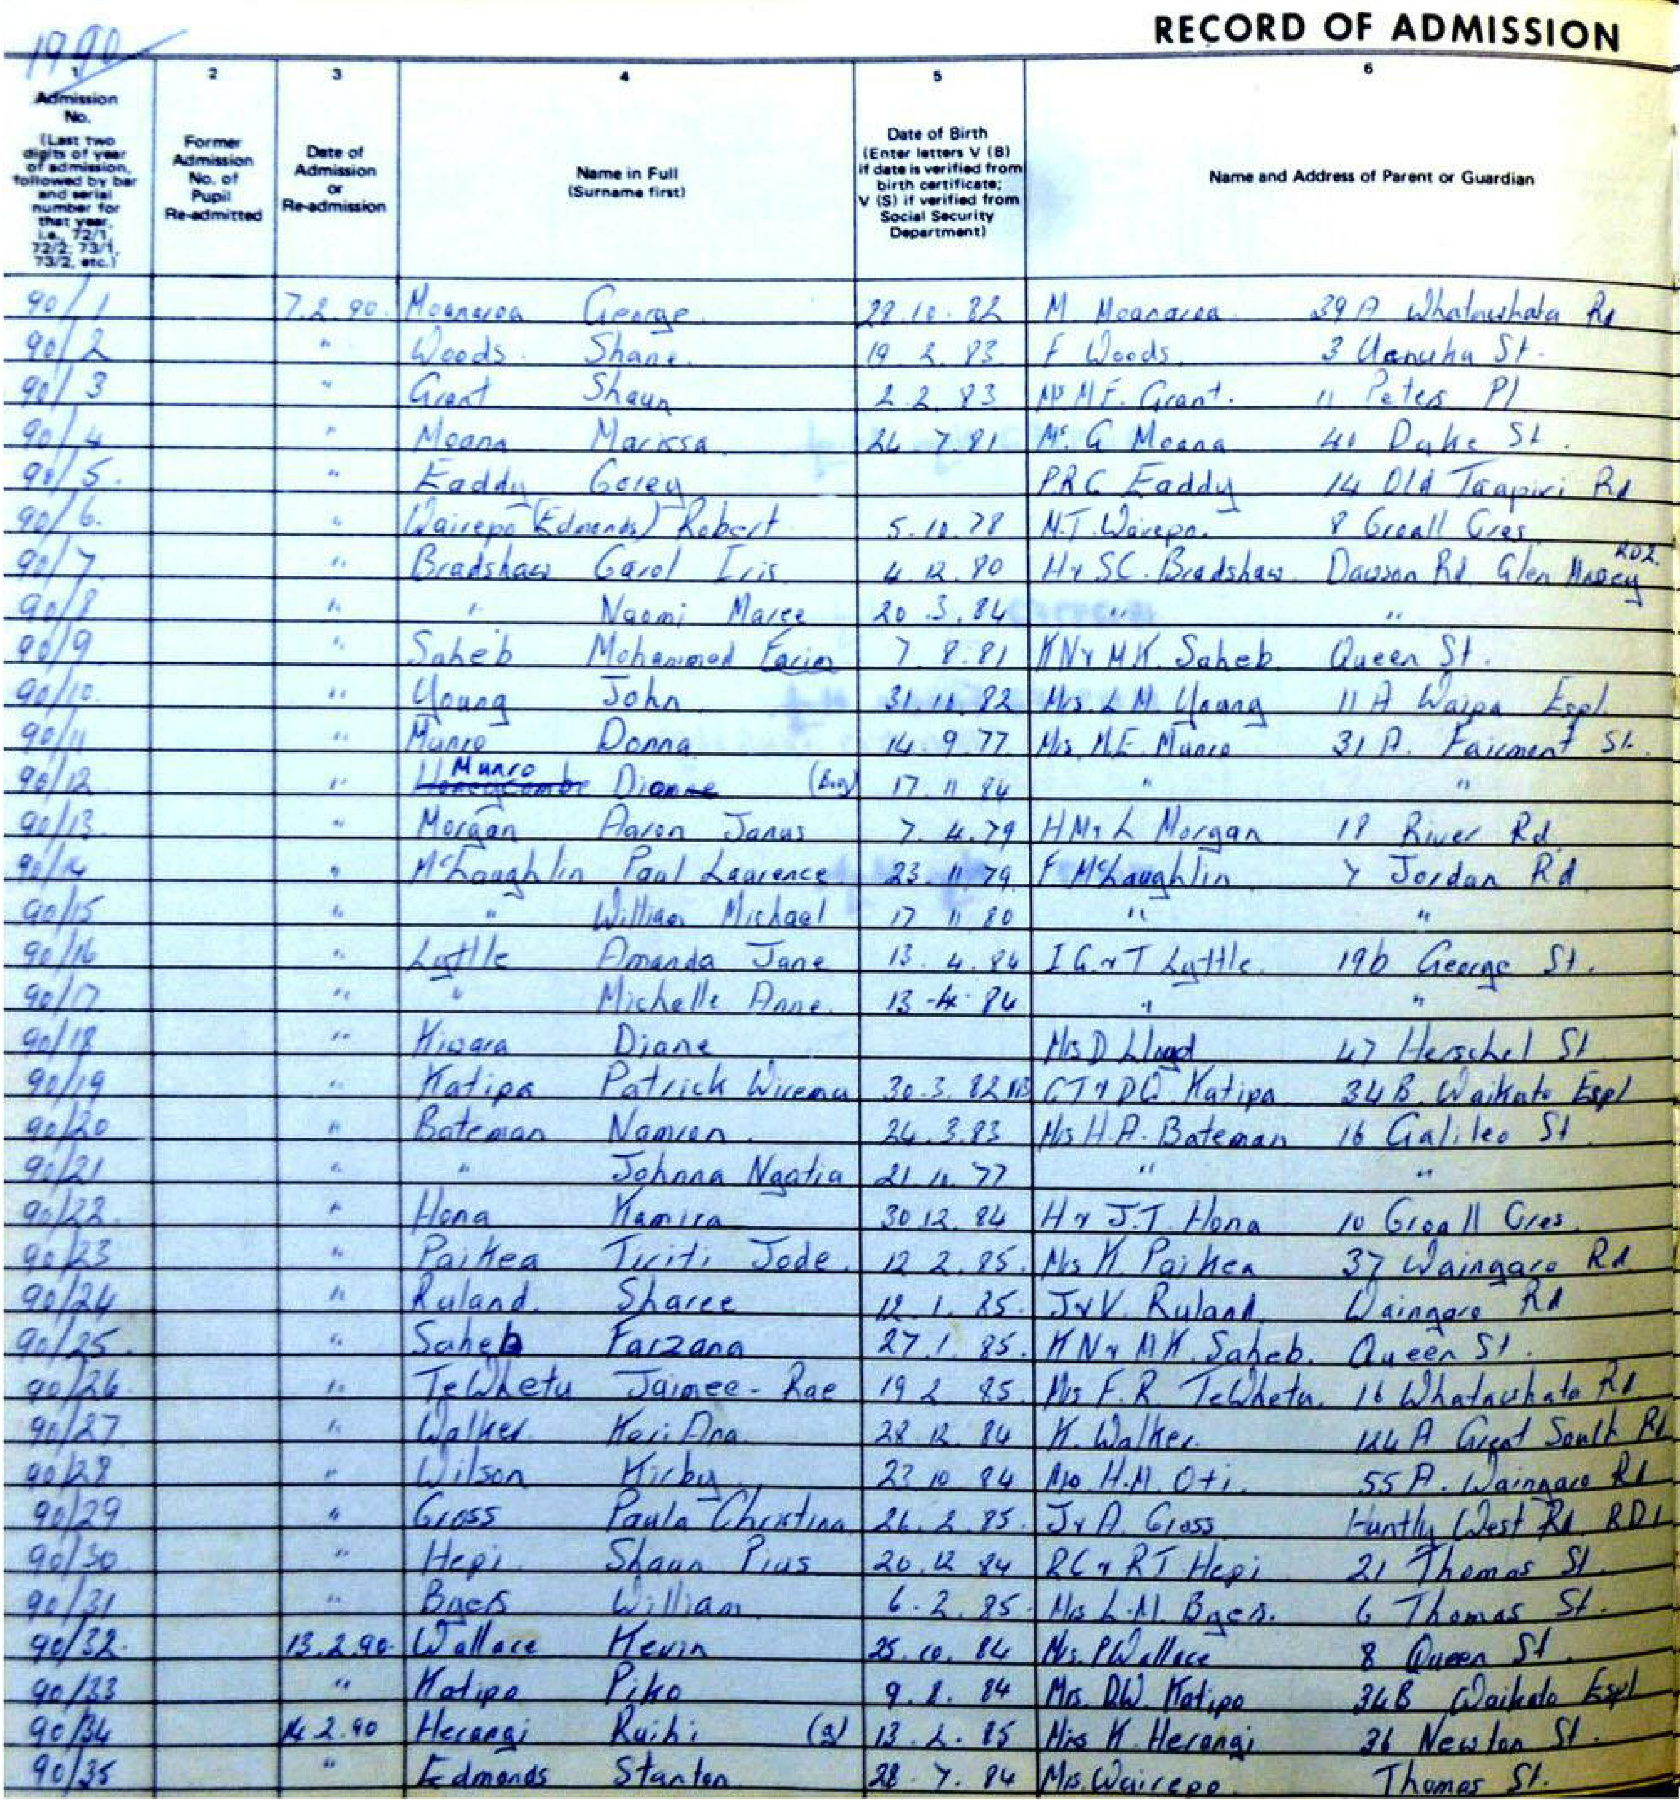 RECORD OF ADMISSION
1990
1 2 3 4 5 6
Admission No. (Last two digits of year of admission, followed by bar and serial number for that year, i.e., 72/1, 72/2, 73/1, 73/2, etc.)
Former Admission No. of Pupil Re-admitted
Date of Admission or Re-admission
Name in Full (Surname first)
Date of Birth (Enter letters V (B) if date is verified from birth certificate; V (S) if verified from Social Security Department)
Name and Address of Parent or Guardian
90/1 7.2.90. Moanaroa George 28.10.82 M Moanaroa 39A Whatawhata Rd
90/2 " Woods Shane 19.2.83 F Woods 3 St.
90/3 " Grant Shaun 2.2.83 M.F. Grant. 11 Peters Pl
90/4 " Moana Marissa 24.7.81 G Moana 41 Duke St.
90/5. " Eaddy Corey PRC Eaddy 14 Old Taupiri Rd
90/6. " Wairepo (Edmonds) Robert 5.10.78 M.T. Wairepo. 8 Croall Cres
90/7 " Bradshaw Carol Iris 4.12.80 H & SC. Bradshaw Dawson Rd Glen Murray RD2.
90/8 " " Naomi Maree 20.3.84 " "
90/9 " Saheb Mohammed 7.8.81 KN & MK. Saheb Queen St.
90/10. " Young John 31.10.82 Mrs. L M. Young 11A Waipa Espl.
90/11 " Munro Donna 14.9.77. Mrs. M.E. Munro 31A. St.
90/12 " Honeycombe Munro Dianne (Boy) 17 11 84 " "
90/13. " Morgan Aaron James 7.4.79 HM & L Morgan 18 River Rd.
90/14 " McLaughlin Paul Laurence 23.11.79. F McLaughlin 7 Jordan Rd
90/15 " " William Michael 17 11 80 " "
90/16 " Lyttle Amanda Jane 13.4.84 I G & T Lyttle. 19b George St.
90/17 " " Michelle Anne. 13-4-84 " "
90/18 " Diane Mrs D Lloyd 47 Herschel St
90/19 " Katipa Patrick Wirema 30.3.82 CT & DQ Katipa 34B. Waikato Espl
90/20 " Bateman Namron 24.3.83 Mrs H.A. Bateman 16 Galileo St
90/21 " " Johnna Ngatia 21.11.77 " "
90/22. " Hona Kamira 30.12.84 H & J.T. Hona 10 Croall Cres.
90/23 " Paikea Tiriti Jode 12.2.85. Mrs K. Paikea 37 Waingaro Rd
90/24 " Ruland. Sharee 12.1.85. J & V. Ruland. Waingaro Rd
90/25. " Saheb Farzana 27.1.85. KN & MK. Saheb. Queen St.
90/26. " TeWhetu Jaimee-Rae 19 2 85. Mrs F.R. TeWhetu. 16 Whatawhata Rd
90/27 " Walker Keri Ana. 28.12.84 K. Walker. 124A Great South Rd
90/28 " Wilson Kirby 23 10 84 H.M. Oti. 55A. Waingaro Rd
90/29 " Cross Paula Christina 26.2.85. J & A. Cross Huntly West Rd. RD1
90/30 " Hepi Shaun Pius 20.12.84 RC & RT Hepi 21 Thomas St.
90/31 " Byers William 6.2.85. Mrs L.M. Byers. 6 Thomas St.
90/32. 13.2.90. Wallace Kevin 25.10.84 Mrs. P Wallace 8 Queen St
90/33 " Katipa Piko 9.8.84 Mrs. D.W. Katipa 34B Waikato Espl
90/34 14.2.90 Herangi Ruihi (g) 13.2.85 Miss K Herangi 36 Newton St.
90/35 " Edmonds Stanton 28.7.84 Mrs. Wairepo. Thomas St.